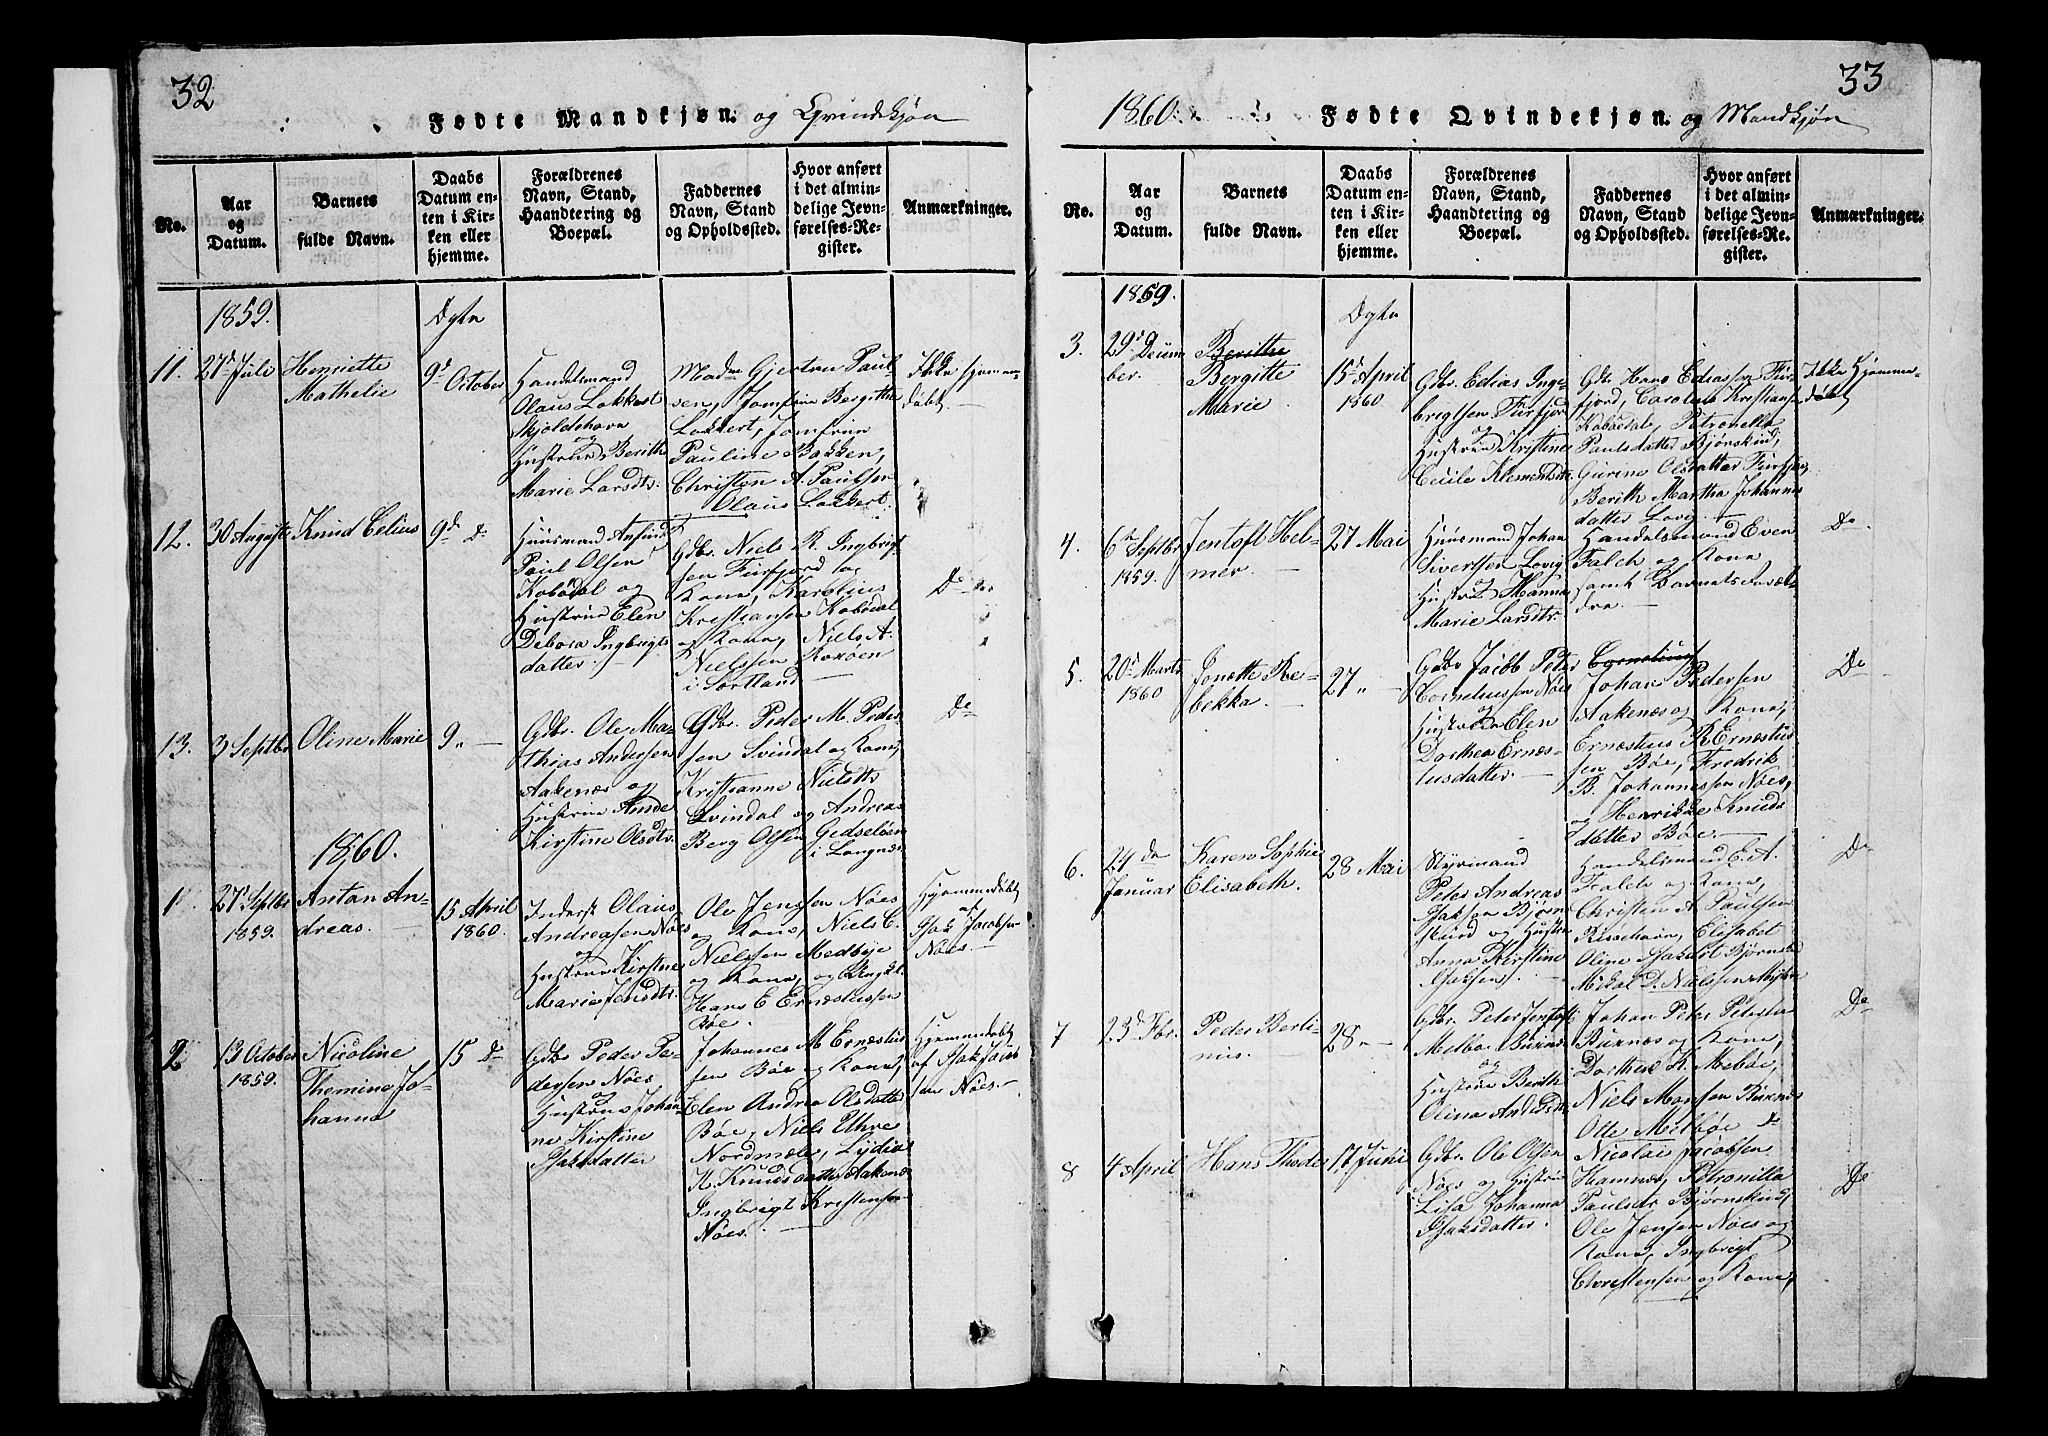 32
Fødte Mandkjøn. og Qvindekjøn
No.
Aar
og
Datum.
Barnets
fulde Navn.
Daabs
Datum en-
ten i Kir-
ken eller
hjemme.
Forældrenes
Navn, Stand,
Haandtering og
Boepæl.
Faddernes
Navn, Stand
og Opholdssted.
Hvor anført
i det almin-
delige Jevn-
førelses-Re-
gister.
Anmærkninger.
1859.
Dgtn
11.
27d Juli
Henriette
Mathelie
9d October
Handelsmand
Olaus Lokkert
Skjoldehavn
og
Hustrue Berith
Marie Larsdtr.
Madme Gjertru Paul-
sen, Jomfrue Bergithe
Lokkert, Jomfrue
Pauline Bakken,
Christen A. Paulsen
Olaus Lokkert.
Ikke hjemme-
døbt.
12.
30 Auguste
Knud Celius
9d D.
Huusmand Anfind
Paul Olsen
Kobødal og
Hustrue Elen
Debora Ingbrigts-
datter.
Gdbr. Niels R. Ingbrigt-
sen Furfjord og
Kone, Karelius
Kristiansen Kobødal
og Kone, Niels A.
Nielssen Roxøen
i Sortland
Do
13.
3 Septbr
Oline Marie
9 „
Gdbr. Ole Ma-
thias Andersen
Aakenæs og
Hustrue Ande
Kirstine Olsdtr.
Gdbr. Peder M. Peder-
sen Svindal og Kone,
Kristianne Nielsdtr
Svindal og Andreas
Berg Olsen Gedseløen
i Langnæs
Do
1860.
1
27d Septbr
1859.
Antan An-
dreas.
15 April
1860.
Inderst Olaus
Andreasen Nöes
og
Hustrue Kirstine
Marie Jensdtr.
Ole Jenssen Nöes
og Kone, Niels C.
Nielssen Medbye
og Kone, og Ungkl.
Hans E Ernæstussen
Böe.
Hjemmedøbt
af
Isak Jacobsen
Nöes.
2
13 October
1859.
Nicoline
Themine Jo-
hanna
15 Do
Gdbr Peder Pe-
dersen Nöes
og
Hustrue Johan-
ne Kirstine
Isaksdatter
Johannes M Ernæstus-
sen Böe og Kone,
Elen Andrea Olsdatter
Böe, Niels Ethre
Nordmæle, Lydia
K. Knudsdatter Aakenæs
Ingbrigt Kristensen
Nöes.
Hjemmedøbt
af Isak Jacob-
sen Nöes.
33
1860.
Fødte Qvindekjøn. og Mandkjøn
No.
Aar
og
Datum.
Barnets
fulde Navn.
Daabs
Datum en-
ten i Kir-
ken eller
hjemme.
Forældrenes
Navn, Stand,
Haandtering og
Boepæl.
Faddernes
Navn, Stand
og Opholdssted.
Hvor anført
i det almin-
delige Jevn-
førelses-Re-
gister.
Anmærkninger.
1859.
Dgtn
3.
29d Decem-
ber.
Berithe
Bergitte
Marie
15d April
1860
Gdbr. Edias Inge-
brigtsen Furfjord
og
Hustrue Kristine
Cecile Klementsdtr.
Gdbr Hans Ediassen Fur-
fjord, Carolius Kristiansen
Kobødal, Petronella
Paulsdatter Bjørnskind,
Gurine Olsdatter Furfjord
Berith Martha Johannes
datter Lovig
Ikke Hjemme-
døbt
4.
6te Septbr
1859.
Jentoft Hel-
mer.
27 Mai
Huusmand Johan
Sivertsen Lovig
og
Hustr. Hanna
Marie Larsdtr.
Handelsmand Even
Falch og Kone
samt Barnets Foræl-
dre.
Do.
5.
20d Marts
1860
Jonette Re-
bekka.
27 „
Gdbr Jacob Peter
Corneliussen Nöes
og
Hustrue Elen
Dorthea Ernæs-
tusdatter.
Cornelius
Johan Pedersen
Aakenæs og Kone,
Ernæstus R Ernæstus-
sen Böe, Fredrik
B. Johannessen Nöes,
og Henrikke Knuds
datter Böe.
Do
6.
24 de
Januar
Karen Sophie
Elisabeth.
28 Mai
Styrmand
Peder Andreas
Isaksen Bjørn
skind og Hustru
Anna Kirstine
Isaksen.
Handelsmand E. A.
Falch og Kone,
Christen A Paulsen
Risøehavn, Elisabet
Oline Isaksdt Bjørnskind
Mikal D. Nielssen
Do
7
23d Fbr.
Peder Berli-
nus.
28 „
Gdbr. Peter Jentoft
Melbøe Buknæs
og
Hustrue Berith
Olina Andersdtr
Johan Peter Peterssen
Buknæs og Kone,
Dorthea K. Mebøe,
Niels Monsen Buknæs
Otte Melbøe Do
Do
8
4 April
Hans Theder
17 Juni
Gdbr. Ole Olsen
Nöes og Hustrue
Lisa Johanna
Isaksdatter.
Nicolai Jacobsen
Hamnæs, Petronilla
Paulsdr Bjørnskind,
Ole Jensen Nöes og
Kone, Ingbrigt
Christensen og Kone,
Do